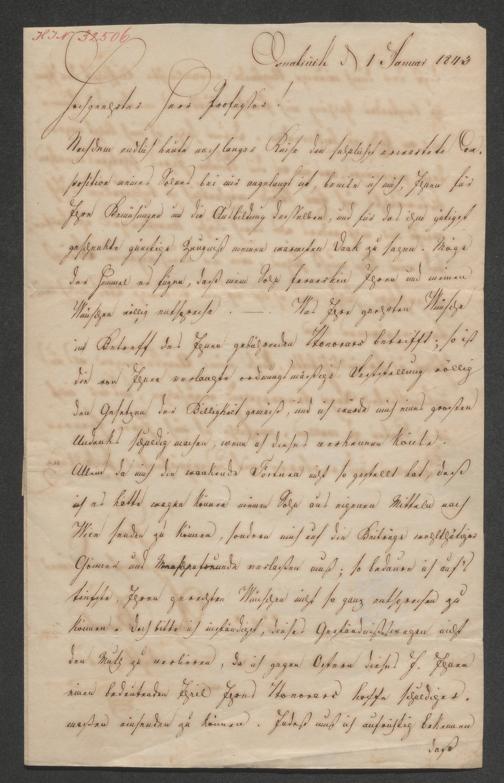 H.I.N. 38506
Osnabrück d 1 Januar 1843
Hochgeehrter Herr Professor!
Nachdem endlich heute nach langer Reise die sehnlichst erwartete Com-
position meines Sohnes bei mir angelangt ist, beeile ich mich, Ihnen für
Ihre Bemühungen um die Ausbildung desselben, und für das ihm gütigst
geschenkte günstige Zeugniß meinen wärmsten Dank zu sagen. Möge
der Himmel es fügen, daß mein Sohn fernerhin Ihren und meinen
Wünschen völlig entspreche. — Was Ihre geehrten Wünsche
in Betreff des Ihnen gebührenden Honorars betrifft; so ist
die von Ihnen verlangte ordnungsmäßige Feststellung völlig
den Gesetzen der Billigkeit gemäß, und ich würde mich eines großen
Undanks schuldig machen, wenn ich dieses verkennen könnte.
Allein da mich die wankende Fortuna nicht so gestellt hat, daß
ich es hätte wagen können meinen Sohn aus eigenen Mitteln nach
Wien senden zu können, sondern mich auf die Beiträge wohlthätiger
Gönner und verlassen muß; so bedaure ich auf's
tiefste, Ihren gerechten Wünschen nicht so ganz entsprechen zu
können. Doch bitte ich inständigst, dieses Geständnisses wegen nicht
den Muth zu verlieren, da ich gegen Ostern dieses J. Ihnen
einen bedeutenden Theil Ihres Honorars hoffe schuldiger-
maßen einsenden zu können. Indeß muß ich aufrichtig bekennen
daß